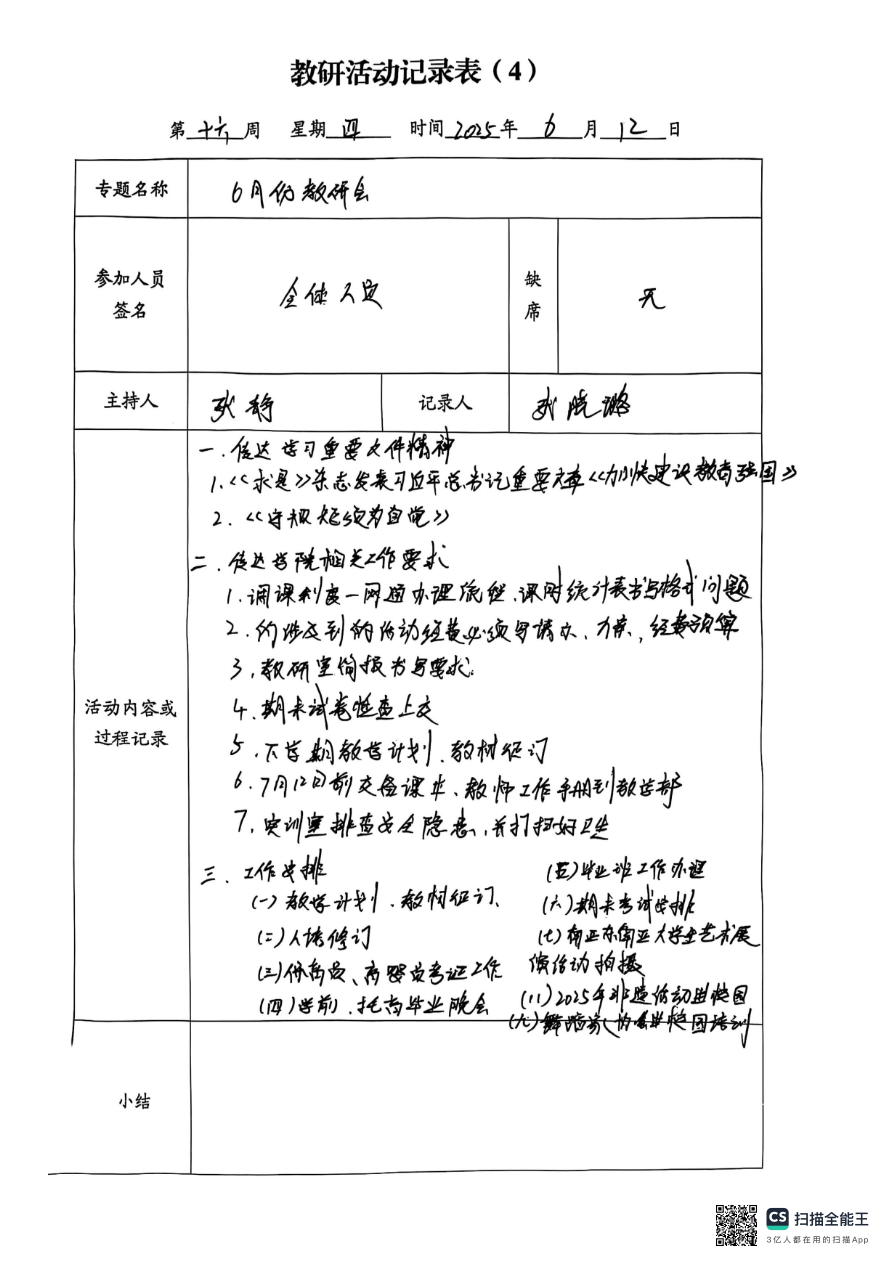 教研活动记录表（4）
第十六周 星期四 时间2025年6月12日
专题名称 6月份教研会
参加人员签名 全体人员 缺席 无
主持人 张静 记录人 张晓璐
活动内容或过程记录
一.传达学习重要文件精神
1.《求是》杂志发表习近平总书记重要文章《加快建设教育强国》
2.《守规矩须为自觉》
二.传达学院相关工作要求
1.调课制度一网通办理流程、课时统计表书写格式问题
2.约涉及到的活动经费必须写请示、方案，经费预算
3.教研室简报书写要求.
4.期末试卷检查上交
5.下学期教学计划、教材征订
6.7月12日前交备课本、教师工作手册到教学部
7.实训室排查安全隐患,并打扫好卫生
三.工作安排
(一)教学计划、教材征订、
(二)人培修订
(三)保育员、育婴员考证工作
(四)学前、托育毕业晚会
(五)毕业班工作办理
(六)期末考试安排
(七)南亚东南亚大学生艺术展
演活动拍摄
(八)2025年非遗活动进校园
(九)舞蹈家协会进校园培训
小结
CS 扫描全能王
3亿人都在用的扫描App